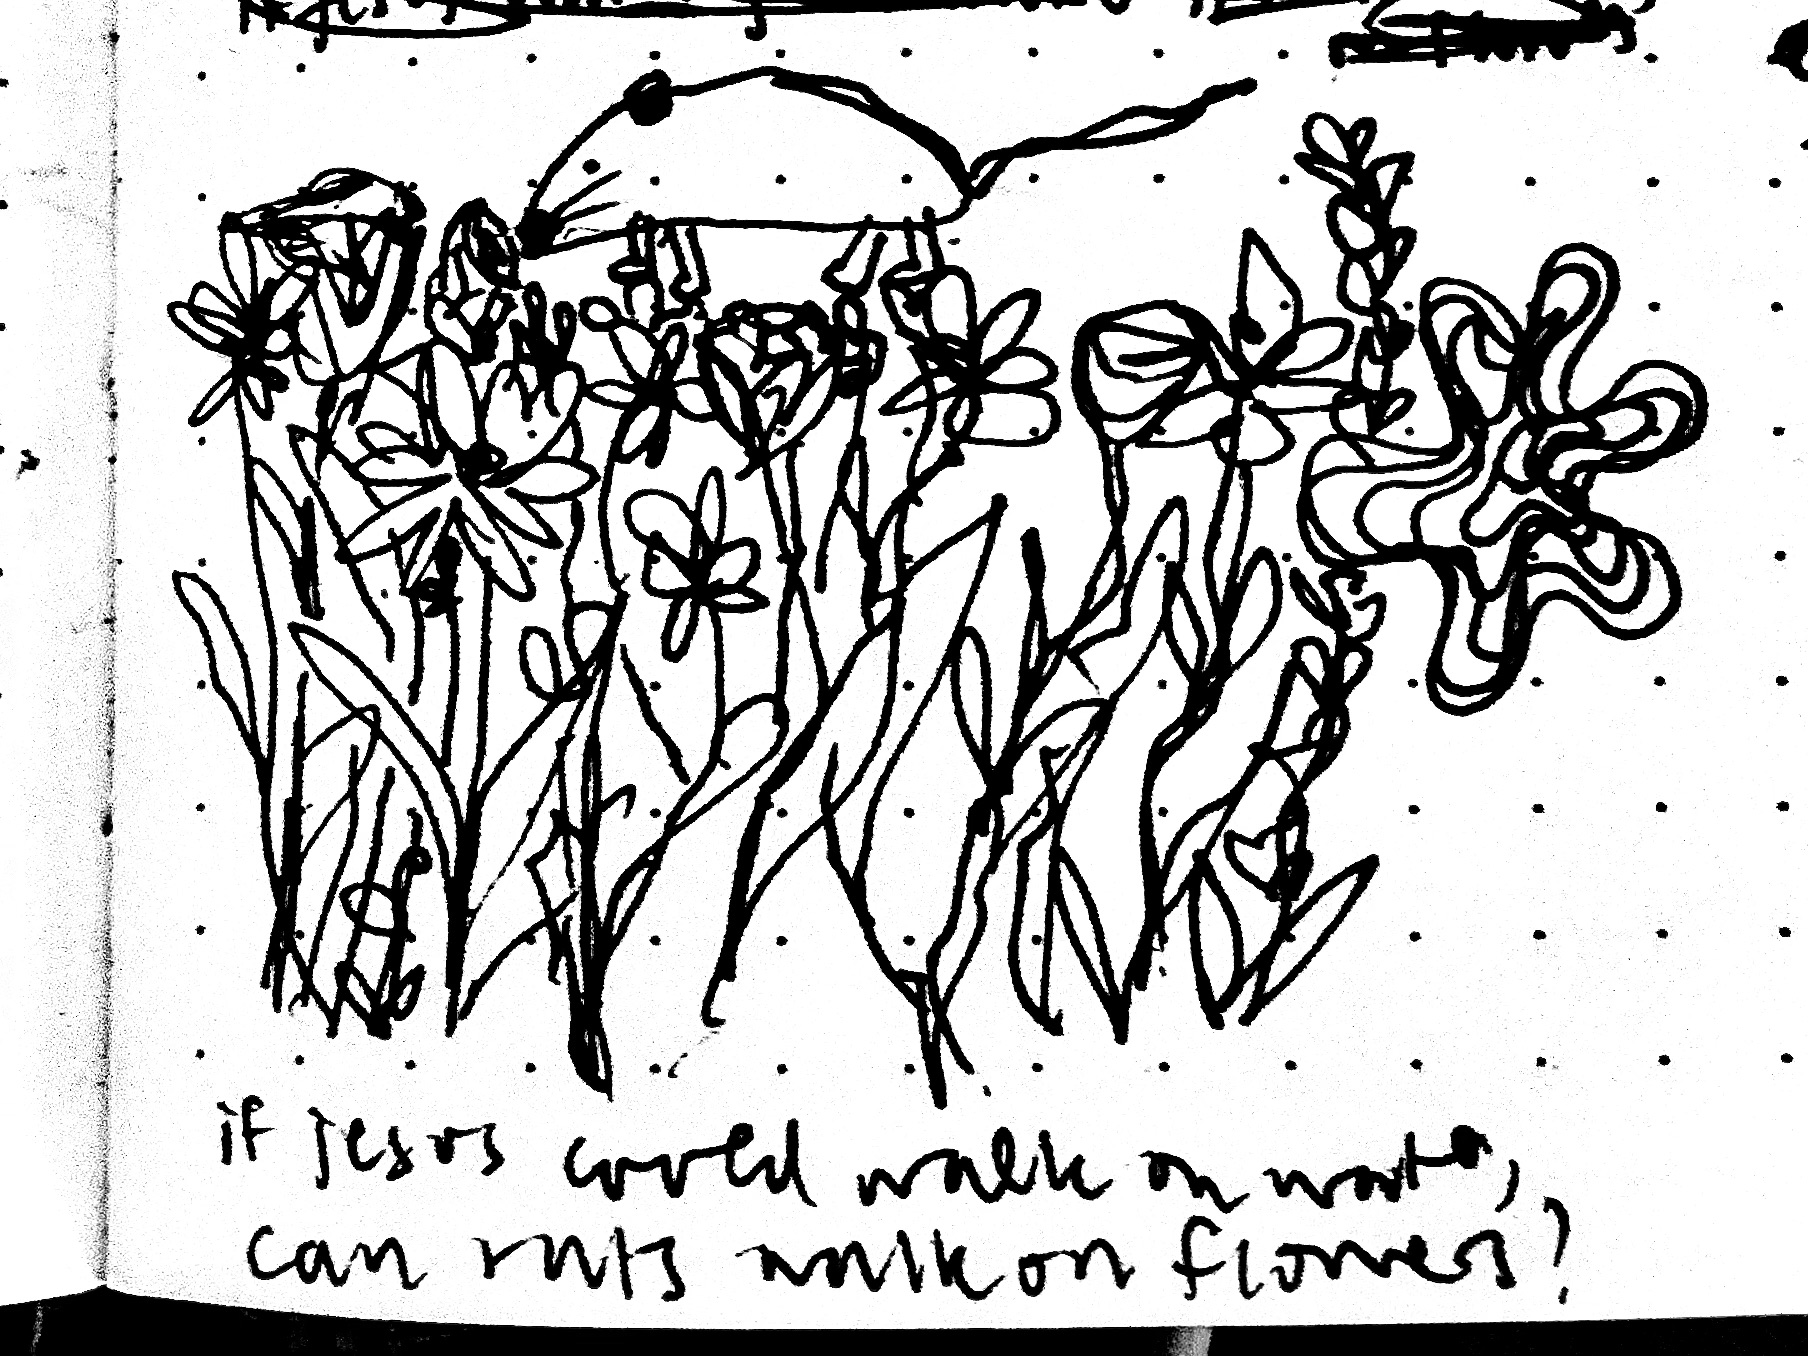 if jesus could walk on water,
can rats walk on flowers?